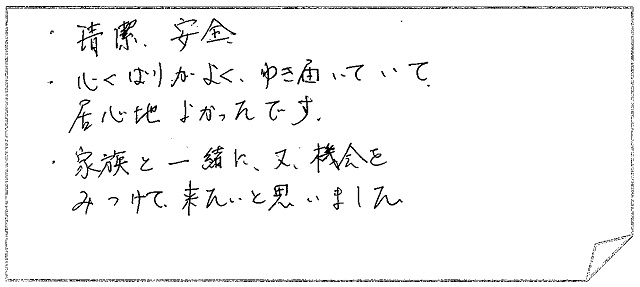 ・清潔、安全。
・心くばりがよく、ゆき届いていて、
居心地よかったです。
・家族と一緒に、又、機会を
みつけて、来たいと思いました。